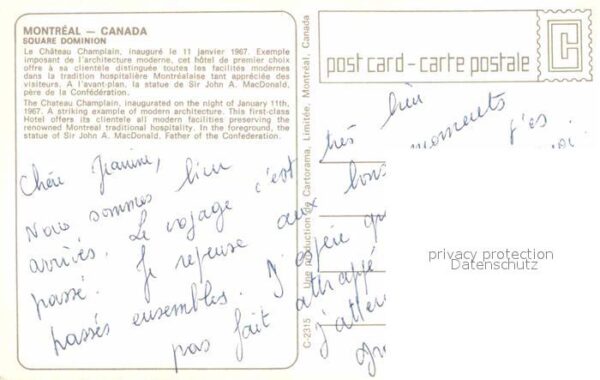 MONTRÉAL — CANADA
SQUARE DOMINION
Le Château Champlain, inauguré le 11 janvier 1967. Exemple
imposant de l'architecture moderne, cet hôtel de premier choix
offre à sa clientèle distinguée toutes les facilités modernes
dans la tradition hospitalière Montréalaise tant appréciée des
visiteurs. A l'avant-plan, la statue de Sir John A. MacDonald,
père de la Confédération.
The Chateau Champlain, inaugurated on the night of January 11th,
1967. A striking example of modern architecture. This first-class
Hotel offers its clientele all modern facilities preserving the
renowned Montreal traditional hospitality. In the foreground, the
statue of Sir John A. MacDonald, Father of the Confederation.
Chère Jeannine,
Nous sommes bien
arrivés. Le voyage c'est très bien
passé. Je repense aux bons moments
passés ensembles. J'espère que j'es
pas fait attrappé
j'atten
C-2315 Une production de Cartorama, Limitée, Montréal, Canada
post card - carte postale
C
privacy protection
Datenschutz